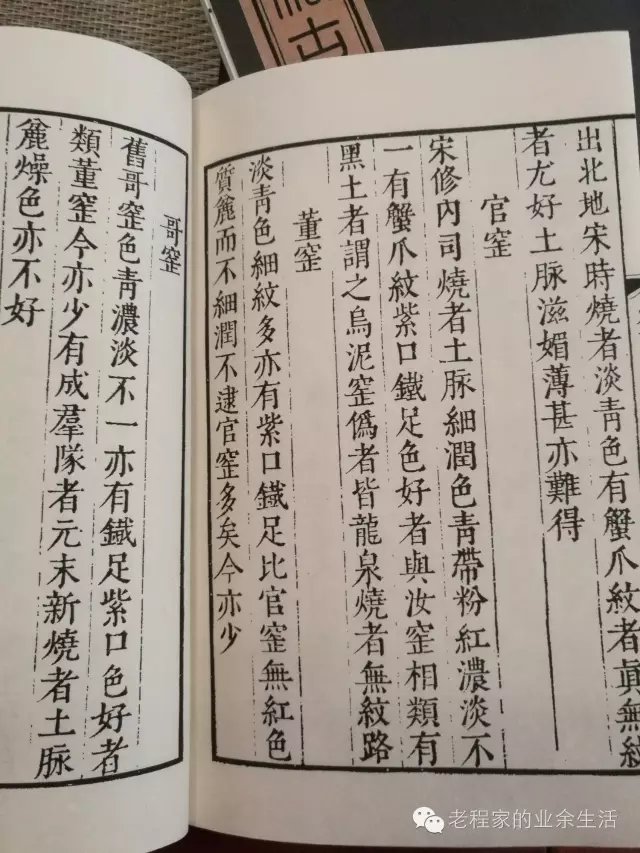 出北地宋時燒者淡青色有蟹爪紋者眞無紋
者尤好土脉滋媚薄甚亦難得
官窑
宋修內司燒者土脉細潤色青帶粉紅濃淡不
一有蟹爪紋紫口鐵足色好者與汝窑相類有
黑土者謂之烏泥窑僞者皆龍泉燒者無紋路
董窑
淡青色細紋多亦有紫口鐵足比官窑無紅色
質麄而不細潤不逮官窑多矣今亦少
哥窑
舊哥窑色青濃淡不一亦有鐵足紫口色好者
類董窑今亦少有成羣隊者元末新燒者土脉
麄燥色亦不好
老程家的业余生活